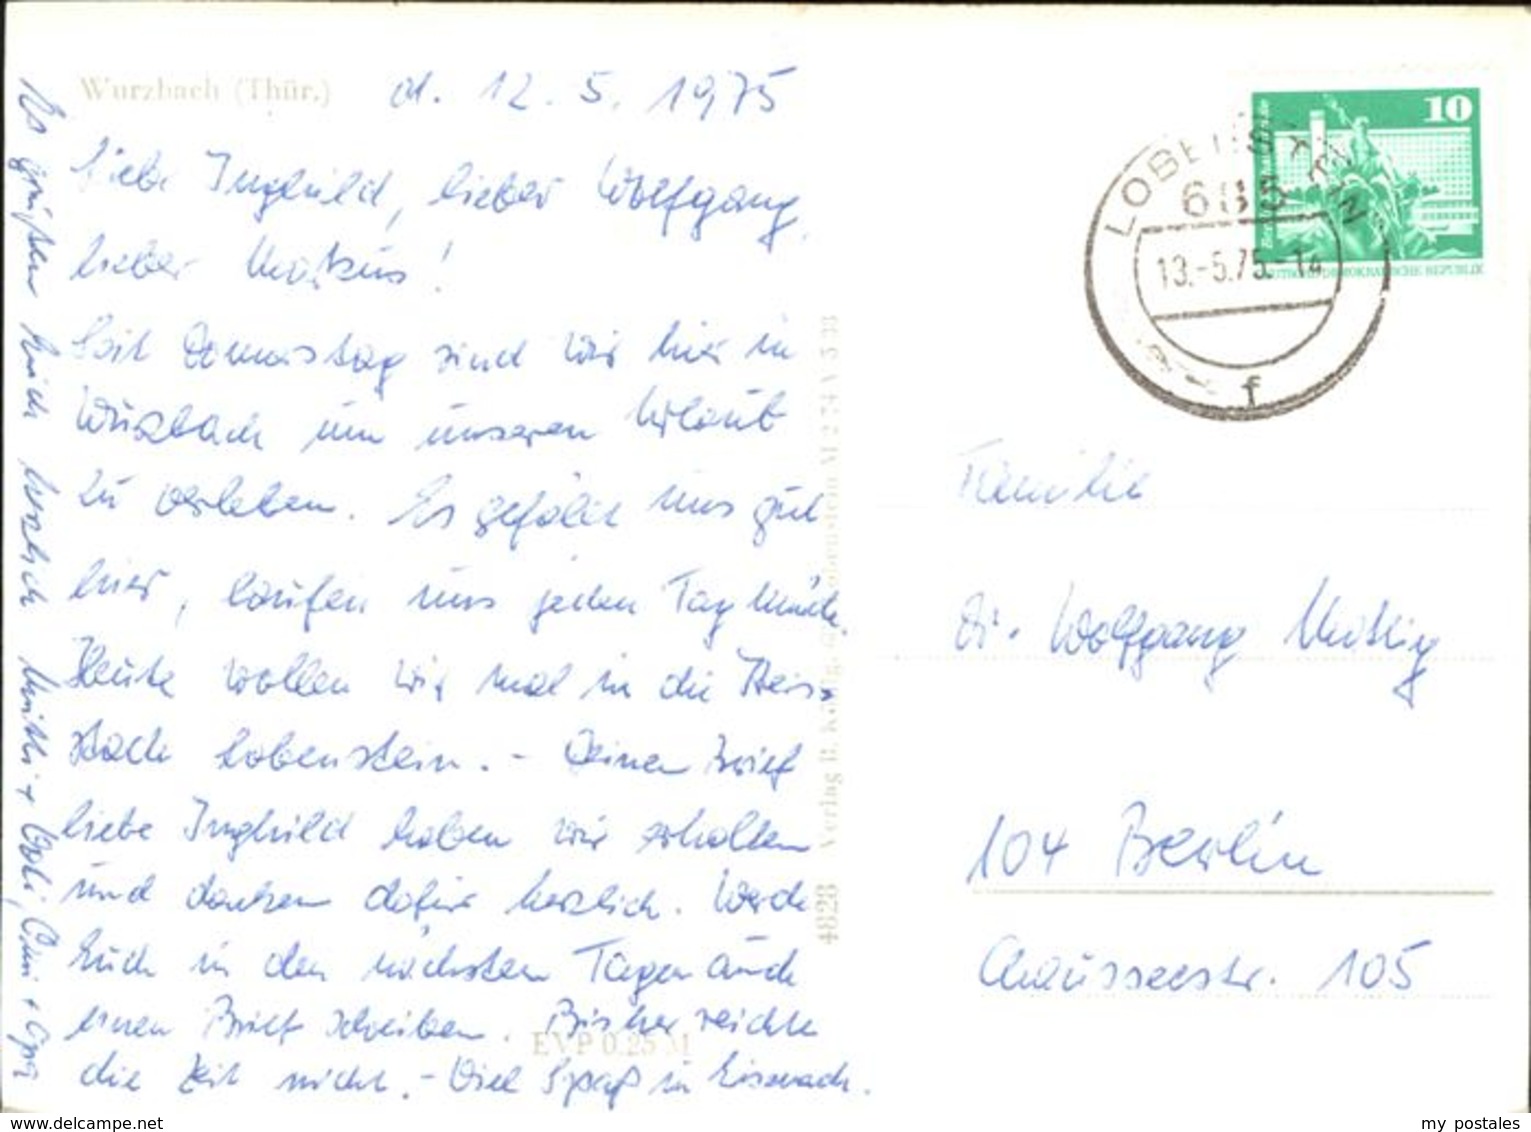 Wurzbach (Thür.)
d. 12. 5. 1975
Liebe Inghild, lieber Wolfgang,
lieber Markus!
Seit Donnerstag sind wir hier in
Wurzbach um unseren Urlaub
zu verleben. Es gefällt uns gut
hier, laufen uns jeden Tag müde.
Heute wollen wir mal in die Kreis-
stadt Lobenstein. - Deinen Brief
liebe Inghild haben wir erhalten
und danken dafür herzlich. Werde
Euch in den nächsten Tagen auch
einen Brief schreiben. Bisher reichte
die Zeit nicht. - Viel Spaß in Eisenach.
Es grüßen Euch herzlich Mutti + Vati, Omi + Opa
EVP 0.25 M
4828 Verlag B. König, Lobenstein M 2 74 V 5 33
10
DEUTSCHE DEMOKRATISCHE REPUBLIK
LOBENSTEIN
685
13.-5.75.-14
f
Familie
Dr. Wolfgang
104 Berlin
Chausseestr. 105
www.delcampe.net
my postales